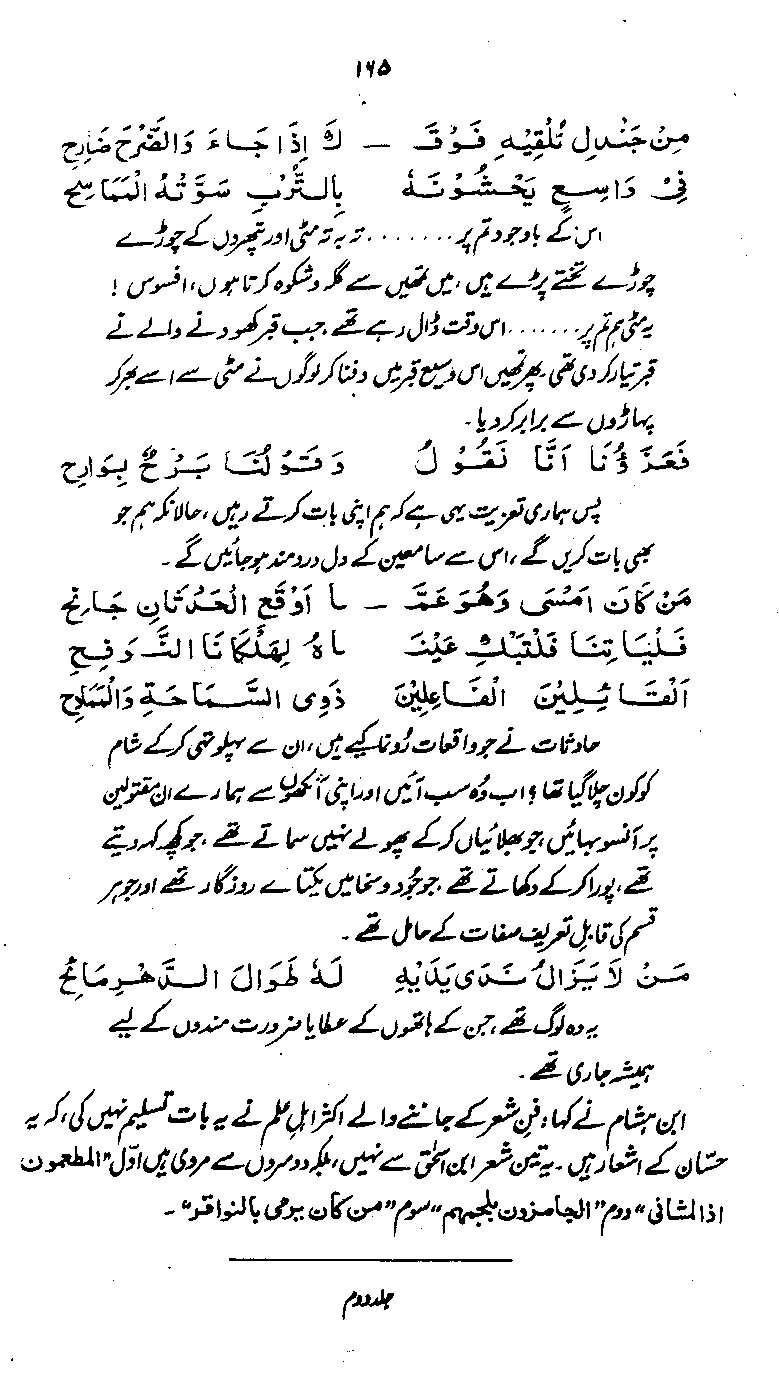 ۱۶۵
مِنْ جَنْدِلٍ تُلْقِيْهِ فَوْقَـ – كَ اِذَا جَاءَ وَالضَّرْحَ ضَارِحٌ
فِىْ وَاسِعٍ يَحْشُوْنَهٗ بِالتُّرْبِ سَوَّتْهُ الْمَمَاسِحُ
اس کے باوجود تم پر ........ تہ بہ تہ مٹی اور پتھروں کے چوڑے
چوڑے تختے پڑے ہیں، میں تمھیں سے گلہ و شکوہ کرتا ہوں، افسوس !
یہ مٹی ہم تم پر ...... اس وقت ڈال رہے تھے، جب قبر کھودنے والے نے
قبر تیار کر دی تھی، پھر تمھیں اس وسیع قبر میں دفنا کر لوگوں نے مٹی سے اسے بھر کر
پھاڑوں سے برابر کر دیا۔
فَعَزَاؤُنَا اَنَّا نَقُوْلُ وَقَوْلُنَا بَرْحٌ بَوَارِحُ
پس ہماری تعزیت یہی ہے کہ ہم اپنی بات کرتے رہیں، حالانکہ ہم جو
بھی بات کریں گے، اس سے سامعین کے دل دردمند ہو جائیں گے۔
مَنْ كَانَ اَمْسٰى وَهُوَ عَمَّـ – ـا اَوْقَعَ الْحَدْثَانِ جَانِحٌ
فَلْيَاْتِنَا فَلْتَبْكِ عَيْنَـ ـاهُ لِهَلْكَانَا النَّوَفِحِ
اَلْقَائِلِيْنَ الْفَاعِلِيْنَ ذَوِى السَّمَاحَةِ وَالْمَمَادِحِ
حادثات نے جو واقعات رُونما کیے ہیں، ان سے پہلو تہی کر کے شام
کو کون چلا گیا تھا ؟ اب وہ سب آئیں اور اپنی آنکھوں سے ہمارے ان مقتولین
پر آنسو بہائیں، جو بھلائیاں کر کے پھولے نہیں سماتے تھے، جو کچھ کہہ دیتے
تھے، پورا کر کے دکھاتے تھے، جو جُود و سخا میں یکتائے روزگار تھے اور جو ہر
قسم کی قابلِ تعریف صفات کے حامل تھے۔
مَنْ لَا يَزَالُ نَدٰى يَدَيْهِ لَهٗ طَوَالَ الدَّهْرِ مَائِحُ
یہ وہ لوگ تھے، جن کے ہاتھوں کے عطایا ضرورت مندوں کے لیے
ہمیشہ جاری تھے۔
ابن ہشام نے کہا، فنِ شعر کے جاننے والے اکثر اہلِ علم نے یہ بات تسلیم نہیں کی، کہ یہ
حسّان کے اشعار ہیں۔ یہ تین شعر ابن اسحٰق سے نہیں، بلکہ دوسروں سے مروی ہیں اوّل "المطعمون
اذا المشانی" دوم "الجامزون بلجمهم" سوم "من کان یرمی بالنواقر"۔
جلد دوم